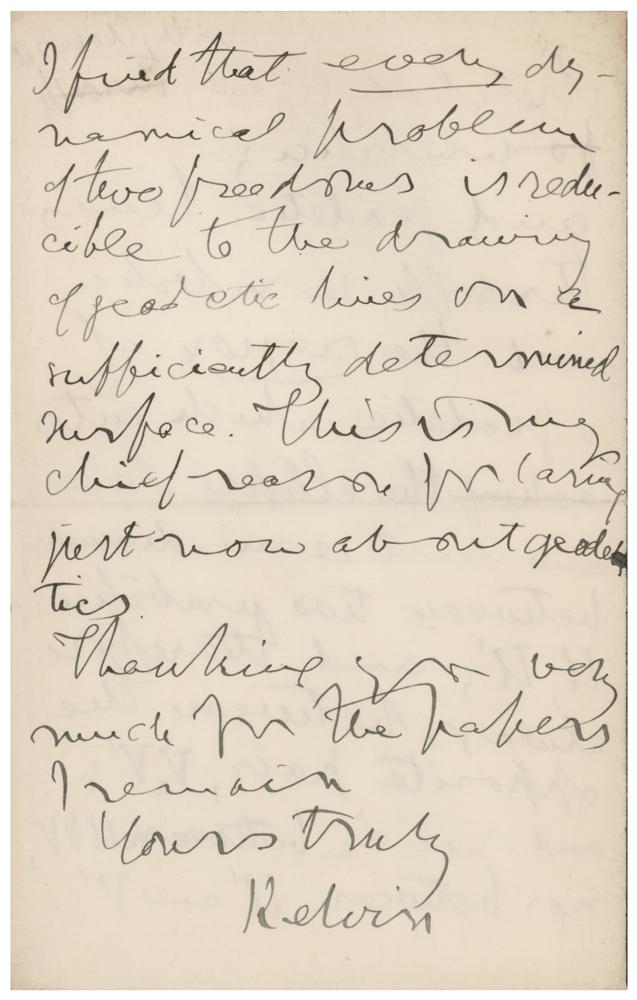 I find that every dy-
namical problem
of two freedoms is redu-
cible to the drawing
of geodetic lines on a
sufficiently determined
surface. This is my
chief reason for caring
just now about geode-
tics
Thanking you very
much for the papers
I remain
Yours truly
Kelvin